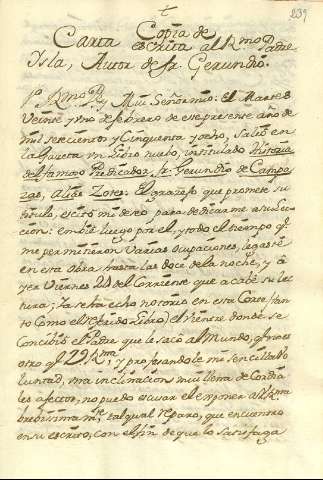 239
Carta Copia de
escrita al Rmo Padre
Isla, Autor de fr. Gerundio.
Rmo P. y Mui Señor mio. El Martes
Veinte y Vno de febrero de este presente año de
mil setecientos y Cinquenta y ocho, Salió en
la Gaceta vn Libro nuebo, intitulado Historia
del famoso Predicador fr. Gerundio de Campa
zas, alias Zotes. El grazejo que promete su
titulo, excitó mi deseo para dedicarme a su
embié luego por el, y todo el tiempo q.e
me permitieron Varias Ocupaciones, le gasté
en esta Obra hasta las doce de la noche, y a
yer Viernes 24 del Corriente que acabé su lec
tura; Ya se ha echo notorio en esta Corte (tan
to Como el referido Libro) el Vientre donde se
Concibió, el Padre que le sacó al Mundo, q.e no es
otro q.e V. Rma, y profesandole mi sencilla Vo
luntad, vna inclinacion mui llena de Cordia
les afectos, no puedo escusar el exponer a V. Rma
brebisima m.te tal qual reparo, que encuentro
en su escrito, con el fin de que lo satisfaga